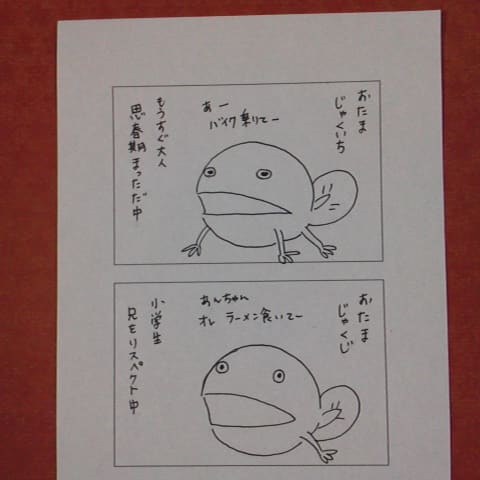 おたま
じゃくいち
あー
バイク乗りてー
もうすぐ大人
思春期まっただ中
おたま
じゃくじ
あんちゃん
オレ ラーメン食いてー
小学生
兄をリスペクト中